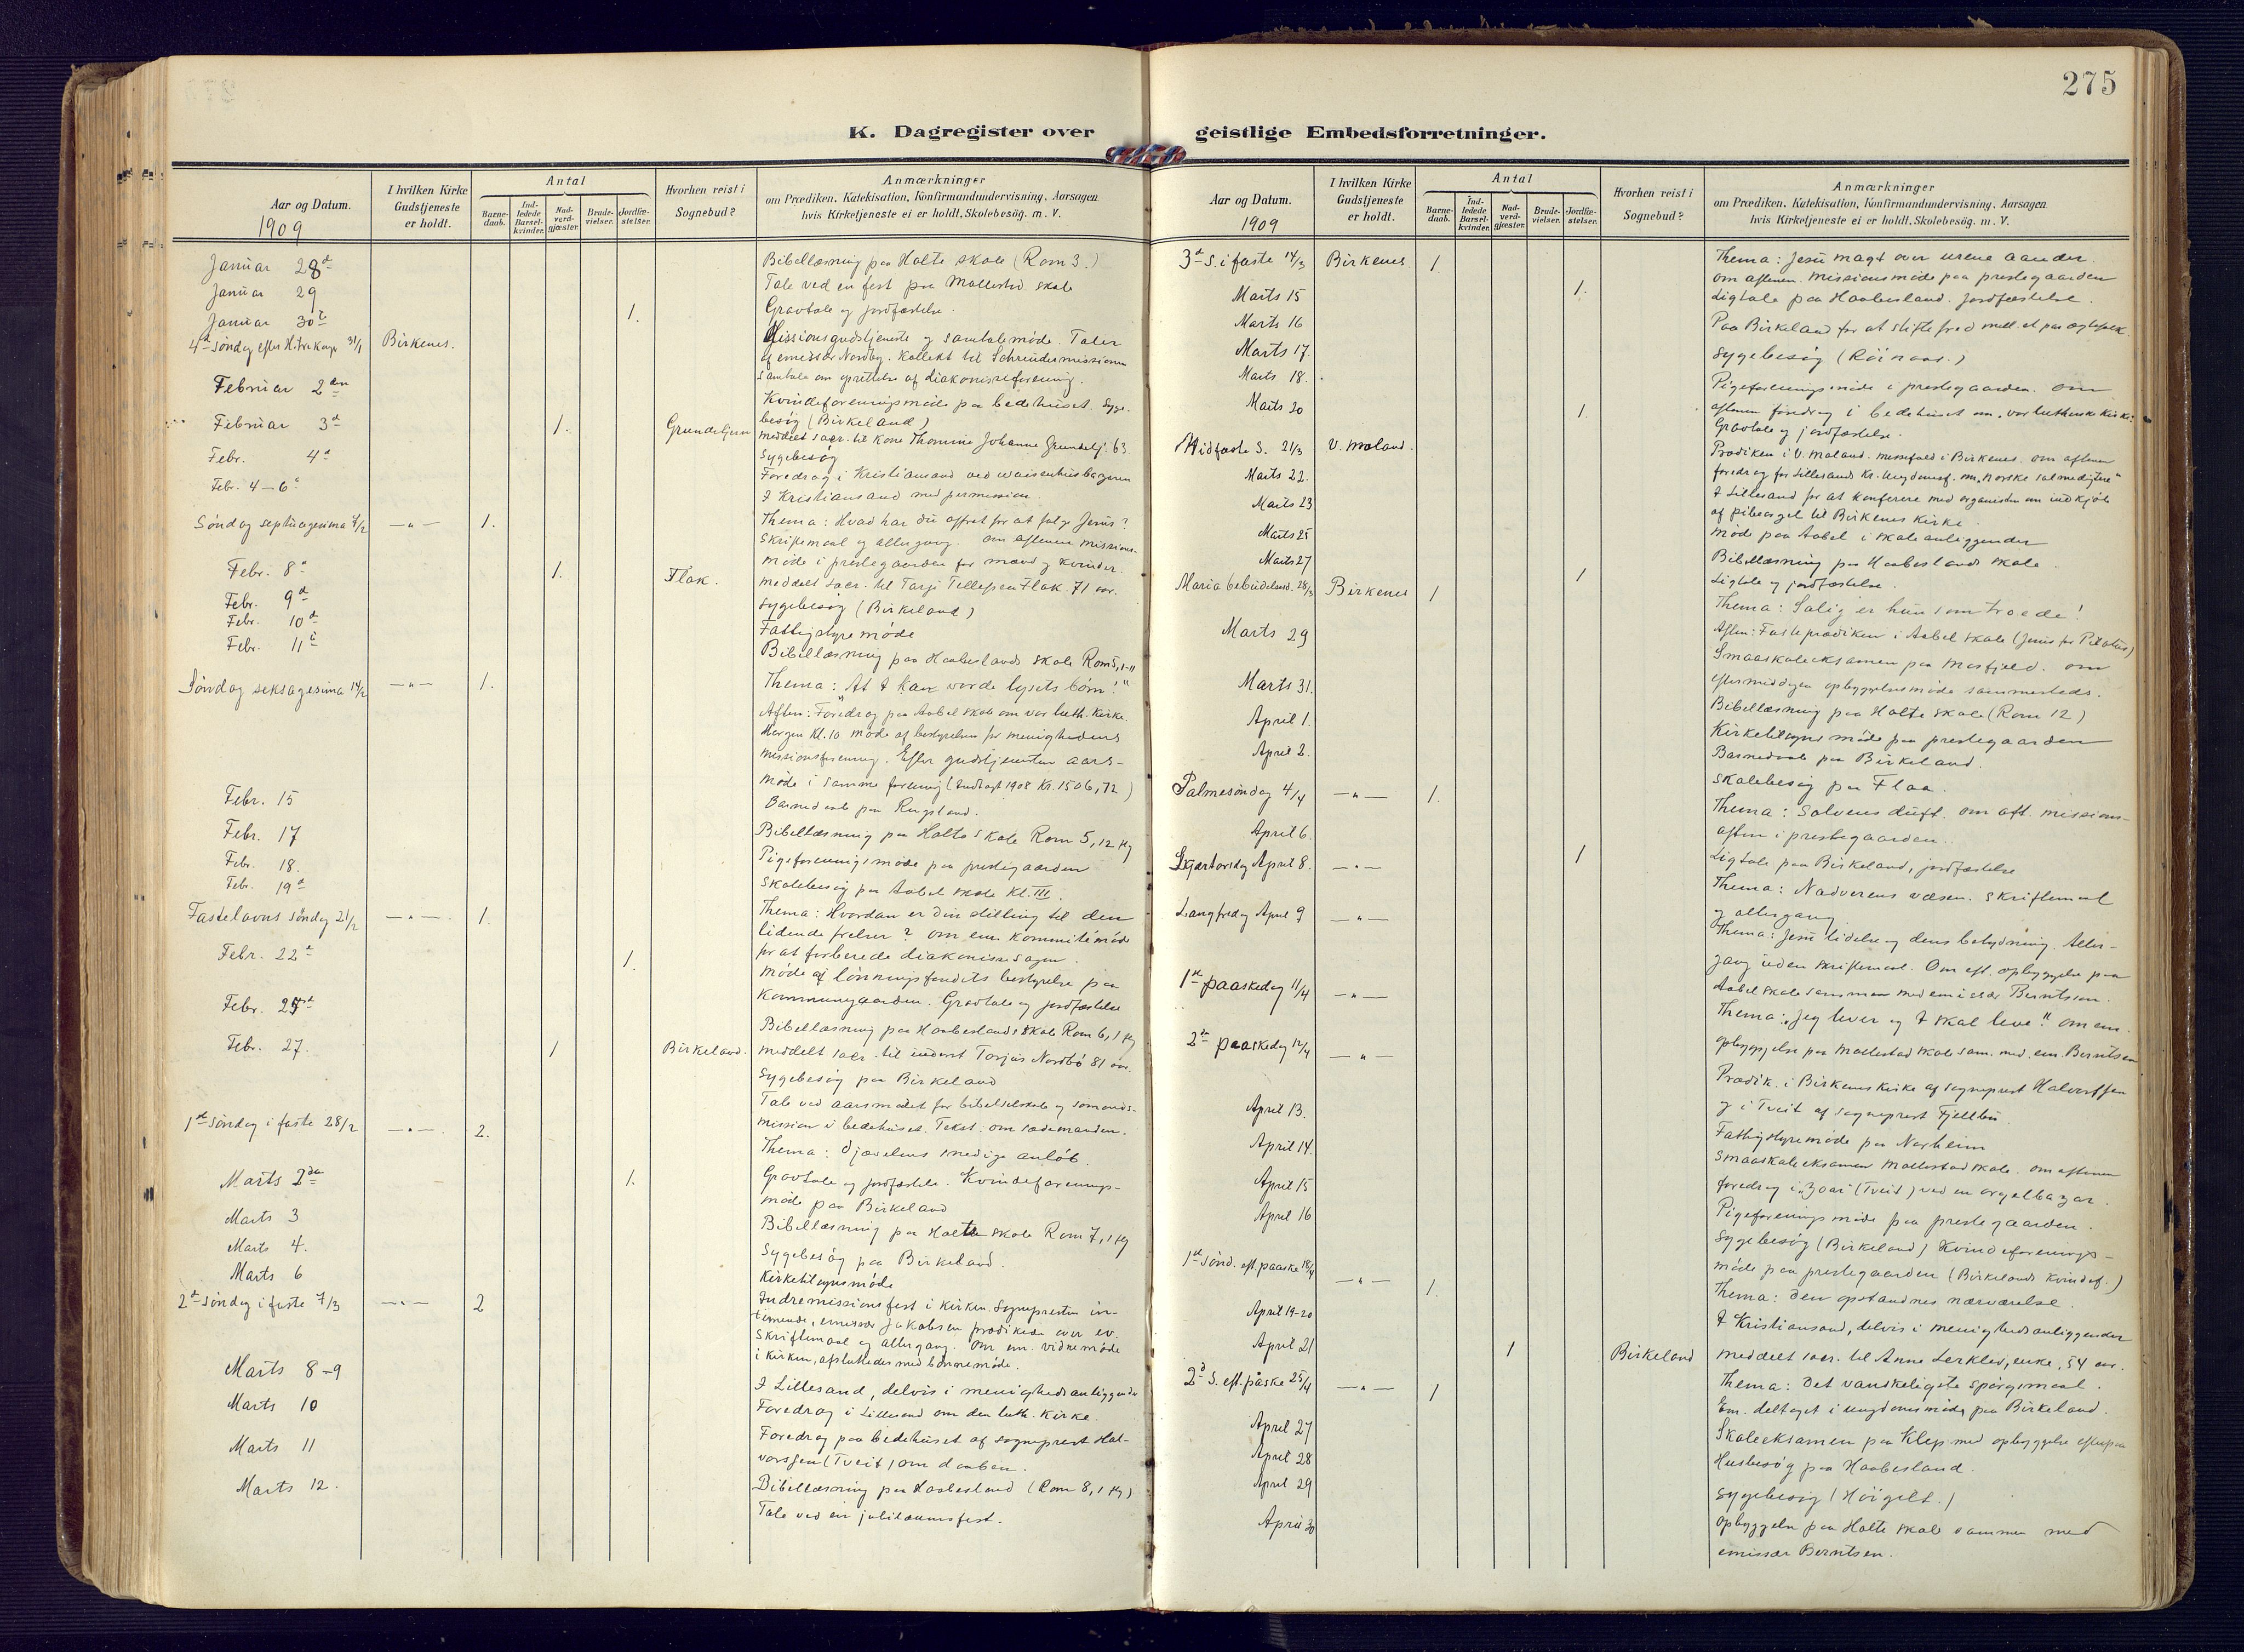 275
K. Dagregister over geistlige Embedsforretninger.
Aar og Datum.
1909
I hvilken Kirke Gudstjeneste er holdt.
Antal
Barnedaab.
Indledede Barselkvinder.
Nadverdgjæster.
Brudevielser.
Jordfæstelser.
Hvorhen reist i Sognebud?
Anmærkninger
om Prædiken, Katekisation, Konfirmandundervisning, Aarsagen
hvis Kirketjeneste ei er holdt, Skolebesøg. m. V.
Januar 28d
Bibellæsning paa Holte skole (Rom 3.)
Januar 29
Tale ved en fest paa Mollestad skole
Januar 30te 1.
Gravtale og jordfæstelse.
4de Søndag efter H. tre Konger 31/1 Birkenes.
Missionsgudstjeneste og samtalemøde. Taler
af emissær Nordby. Kollekt til Schreudermissionen
Samtale om oprettelse af diakonisseforening.
Februar 2den
Kvindeforeningsmøde paa bedehuset. Syge-
besøg (Birkeland)
Februar 3d 1. Grundeljern
meddelt sacr. til kone Thomine Johanne Grundelj. 63.
Febr. 4d
Sygebesøg
Febr. 4-6te
Foredrag i Kristiansand ved waisenhusbazaren
I Kristiansand med permission.
Søndag septuagesima 7/2 —"— 1.
Thema: Hvad har du ofret for at følge Jesus?
Skriftemaal og altergang. Om aftenen missions-
møde i prestegaarden for mænd og kvinder.
Febr. 8d 1. Flak.
meddelt sacr. til Tarje Tellefsen Flak. 71 aar.
Febr. 9d
Sygebesøg (Birkeland)
Febr. 10d
Fattigstyremøde
Febr. 11te
Bibellæsning paa Haabesland skole Rom 5, 1-11
Søndag seksagesima 14/2 —"— 1.
Thema: "At I kan vorde lysets børn!"
Aften: Foredrag paa Aabel skole om vor luth. kirke.
Morgen Kl. 10 møde af bestyrelsen for menighedens
missionsforening. Efter gudstjenesten aars-
møde i samme forening (Indtægt 1908 Kr. 1506,72)
Febr. 15
Barnedaab paa Rugsland.
Febr. 17
Bibellæsning paa Holte skole Rom 5, 12 flg
Febr. 18.
Pigeforeningsmøde paa prestegaarden
Febr. 19d
Skolebesøg paa Aabel skole Kl. III.
Fastelavns søndag 21/2 —"— 1.
Thema: Hvordan er din stilling til den
lidende frelser? Om em. kommitémøde
for at forberede diakonissesagen.
Febr. 22d 1.
Møde af lønningsfondets bestyrelse paa
Kommunegaarden. Gravtale og jordfæstelse
Febr. 25d
Bibellæsning paa Haabeslands skole Rom 6, 1 flg
Febr. 27. 1 Birkeland.
meddelt sacr. til inderst Torjus Nordbø 81 aar.
Sygebesøg paa Birkeland
Tale ved aarsmødet for bibelselskab og sømands-
mission i bedehuset. Tekst: om sædemanden.
1ste Søndag i faste 28/2 —"— 2.
Thema: Djævelens snedige anløb.
Marts 2den 1.
Gravtale og jordfæstelse. Kvindeforenings-
møde paa Birkeland
Marts 3
Bibellæsning paa Holte skole Rom 7, 1 flg
Marts 4.
Sygebesøg paa Birkeland.
Marts 6
Kirketilsynsmøde
2d Søndag i faste 7/3 —"— 2
Indremissionsfest i kirken. Sognepresten in-
timerede, emissær Jakobsen prædikede over ev.
Skriftemaal og altergang. Om em. vidnemøde
i kirken, afsluttedes med bønnemøde.
Marts 8-9
I Lillesand, delvis i menighedsanliggender
Marts 10
Foredrag i Lillesand om den luth. kirke.
Marts 11
Foredrag paa bedehuset af sogneprest Hal-
vorssen (Tveit) om daaben.
Marts 12.
Bibellæsning paa Haabesland (Rom 8, 1 flg)
Tale ved en jubilæumsfest.
Aar og Datum.
1909
I hvilken Kirke Gudstjeneste er holdt.
Antal
Barnedaab.
Indledede Barselkvinder.
Nadverdgjæster.
Brudevielser.
Jordfæstelser.
Hvorhen reist i Sognebud?
Anmærkninger
om Prædiken, Katekisation, Konfirmandundervisning, Aarsagen
hvis Kirketjeneste ei er holdt, Skolebesøg. m. V.
3d S. i faste 14/3 Birkenes. 1.
Thema: Jesu magt over urene aander.
Om aftenen missionsmøde paa prestegaarden
Marts 15 1.
Ligtale paa Haabesland. Jordfæstelse.
Marts 16
Paa Birkeland for at stifte fred mell. et par ægtefolk.
Marts 17.
Sygebesøg (Röinaas.)
Marts 18.
Pigeforeningsmøde i prestegaarden. Om
aftenen foredrag i bedehuset om "vor lutherske kirke".
Marts 20 1.
Gravtale og jordfæstelse.
Midfaste S. 21/3 V. Moland.
Prædiken i V. Moland. Messefald i Birkenes. Om aftenen
foredrag for Lillesands kr. ungdomsf. om "norske salmedigtere"
Marts 22.
I Lillesand for at konferere med organisten om indkjøb
af pibeorgel til Birkenes kirke.
Marts 23
Møde paa Aabel i skoleanliggender
Marts 25
Bibellæsning paa Haabeslands skole.
Marts 27 1
Ligtale og jordfæstelse.
Maria bebudelsesd. 28/3 Birkenes 1
Thema: Salig er hun som troede!
Aften: Fasteprædiken i Aabel skole (Jesus for Pilatus)
Marts 29
Smaaskoleeksamen paa Mosfjeld. Om
eftermiddagen opbyggelsesmøde sammesteds.
Marts 31.
Bibellæsning paa Holte skole (Rom 12)
April 1.
Kirketilsynsmøde paa prestegaarden
Barnedaab paa Birkeland.
April 2.
Skolebesøg paa Flaa.
Palmesøndag 4/4 —"— 1.
Thema: Salvens duft. Om aft. missions-
aften i prestegaarden.
April 6. 1
Ligtale paa Birkeland, jordfæstelse
Skjærtorsdag April 8. —"—
Thema: Nadverens væsen. Skriftemaal
og altergang.
Langfredag April 9 —"—
Thema: Jesu lidelse og dens betydning. Alter-
gang uden skriftemaal. Om eft. opbyggelse paa
Aabel skole sammen med emissær Berntsen.
1ste paaskedag 11/4 —"—
Thema: "Jeg lever og I skal leve". Om em.
opbyggelse paa Mollestad skole sam. med em. Berntsen
2den paaskedag 12/4 —"—
Prædik. i Birkenes kirke af sogneprest Halvorssen
og i Tveit af sogneprest Fjeldbu
April 13.
Fattigstyremøde paa Narheim
April 14.
Smaaskoleeksamen Mollestad skole. Om aftenen
foredrag i (Tveit) ved en orgelbazar.
April 15
Pigeforeningsmøde paa prestegaarden.
April 16
Sygebesøg (Birkeland) Kvindeforenings-
møde paa prestegaarden (Birkelands kvindef.)
1ste Sønd. eft. paaske 18/4 —"— 1.
Thema: Den opstandnes nærværelse.
April 19-20
I Kristiansand, delvis i menighedsanliggender
April 21 1 Birkeland
meddelt sacr. til Anne Lerklev, enke, 54 aar.
2d S. eft. påske 25/4 —"— 1
Thema: Det vanskeligste spørgsmaal.
Em. deltaget i ungdomsmøde paa Birkeland.
April 27
Skoleeksamen paa Klep med opbyggelse efterpaa
April 28
Husbesøg paa Haabesland.
April 29
Sygebesøg (Höigilt.)
April 30
Opbyggelse paa Holte skole sammen med
emissær Berntsen.